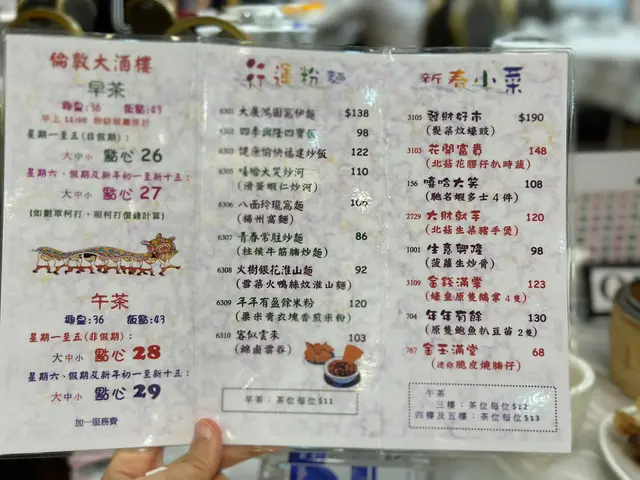 倫敦大酒樓
早茶
超皇:36 飯點:43
早上 11:00 前結賬離座計
星期一至五(非假期):
大中小 點心 26
星期六、假期及新年初一至新十五:
大中小 點心 27
(如劃單柯打，照柯打價錢計算)
午茶
超皇:36 飯點:43
星期一至五(非假期):
大中小 點心 28
星期六、假期及新年初一至新十五:
大中小 點心 29
加一服務費
行運粉麵
6301 大展鴻圖窩伊麵 $138
6302 四季興隆四寶飯 98
6303 健康愉快福建炒飯 122
6305 嘻哈大笑炒河 110
(滑蛋蝦仁炒河)
6306 八面玲瓏窩麵
(楊州窩麵)
6307 青春常駐炒麵 86
(柱侯牛筋腩炒麵)
6308 火樹銀花淮山麵 92
(雪菜火鴨絲炆淮山麵)
6309 年年有盈餘米粉 120
(粟米青衣塊香煎米粉)
6310 客似雲來 103
(錦鹵雲吞)
早茶：茶位每位$11
新春小菜
3105 發財好市 $190
(髮菜炆蠔豉)
3103 花開富貴 148
(北菇花膠仔扒時蔬)
156 嘻哈大笑 108
(馳名蝦多士 4 件)
2729 大財就手 120
(北菇生菜豬手煲)
1001 生意興隆 98
(菠蘿生炒骨)
3109 金錢滿掌 123
(蠔皇原隻鵝掌 4 隻)
704 年年有餘 130
(原隻鮑魚扒豆苗 2 隻)
767 金玉滿堂 68
(迷你脆皮燒腩仔)
午茶
三樓：茶位每位$12
四樓及五樓：茶位每位$13